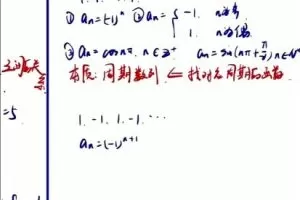 ① aₙ=(-1)ⁿ ② aₙ={ -1, n为奇
1, n为偶
③ aₙ=cosnπ, n∈Z⁺ aₙ=sin(nπ+π/2) n∈N*
本质: 周期数列 ⇐ 找对应周期的函数
=5
1, -1, 1, -1, ...
aₙ=(-1)ⁿ⁺¹